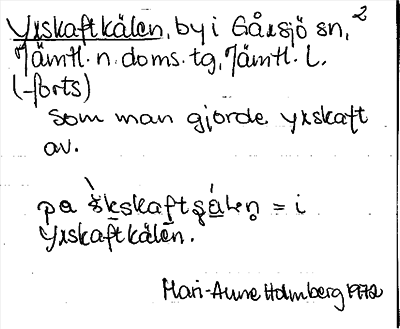 Yxskaftkälen, by i Gåxsjö sn, 2
Jämtl. n. doms. tg, Jämtl. L.
(-forts)
som man gjorde yxskaft
av.
på
= i
Yxskaftkälen.
Mari-Anne Holmberg 1972